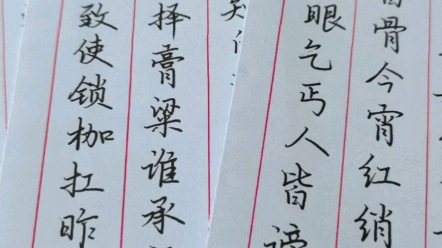 骨今宵红绡
眼乞丐人皆谤
择膏粱谁承
致使锁枷扛昨